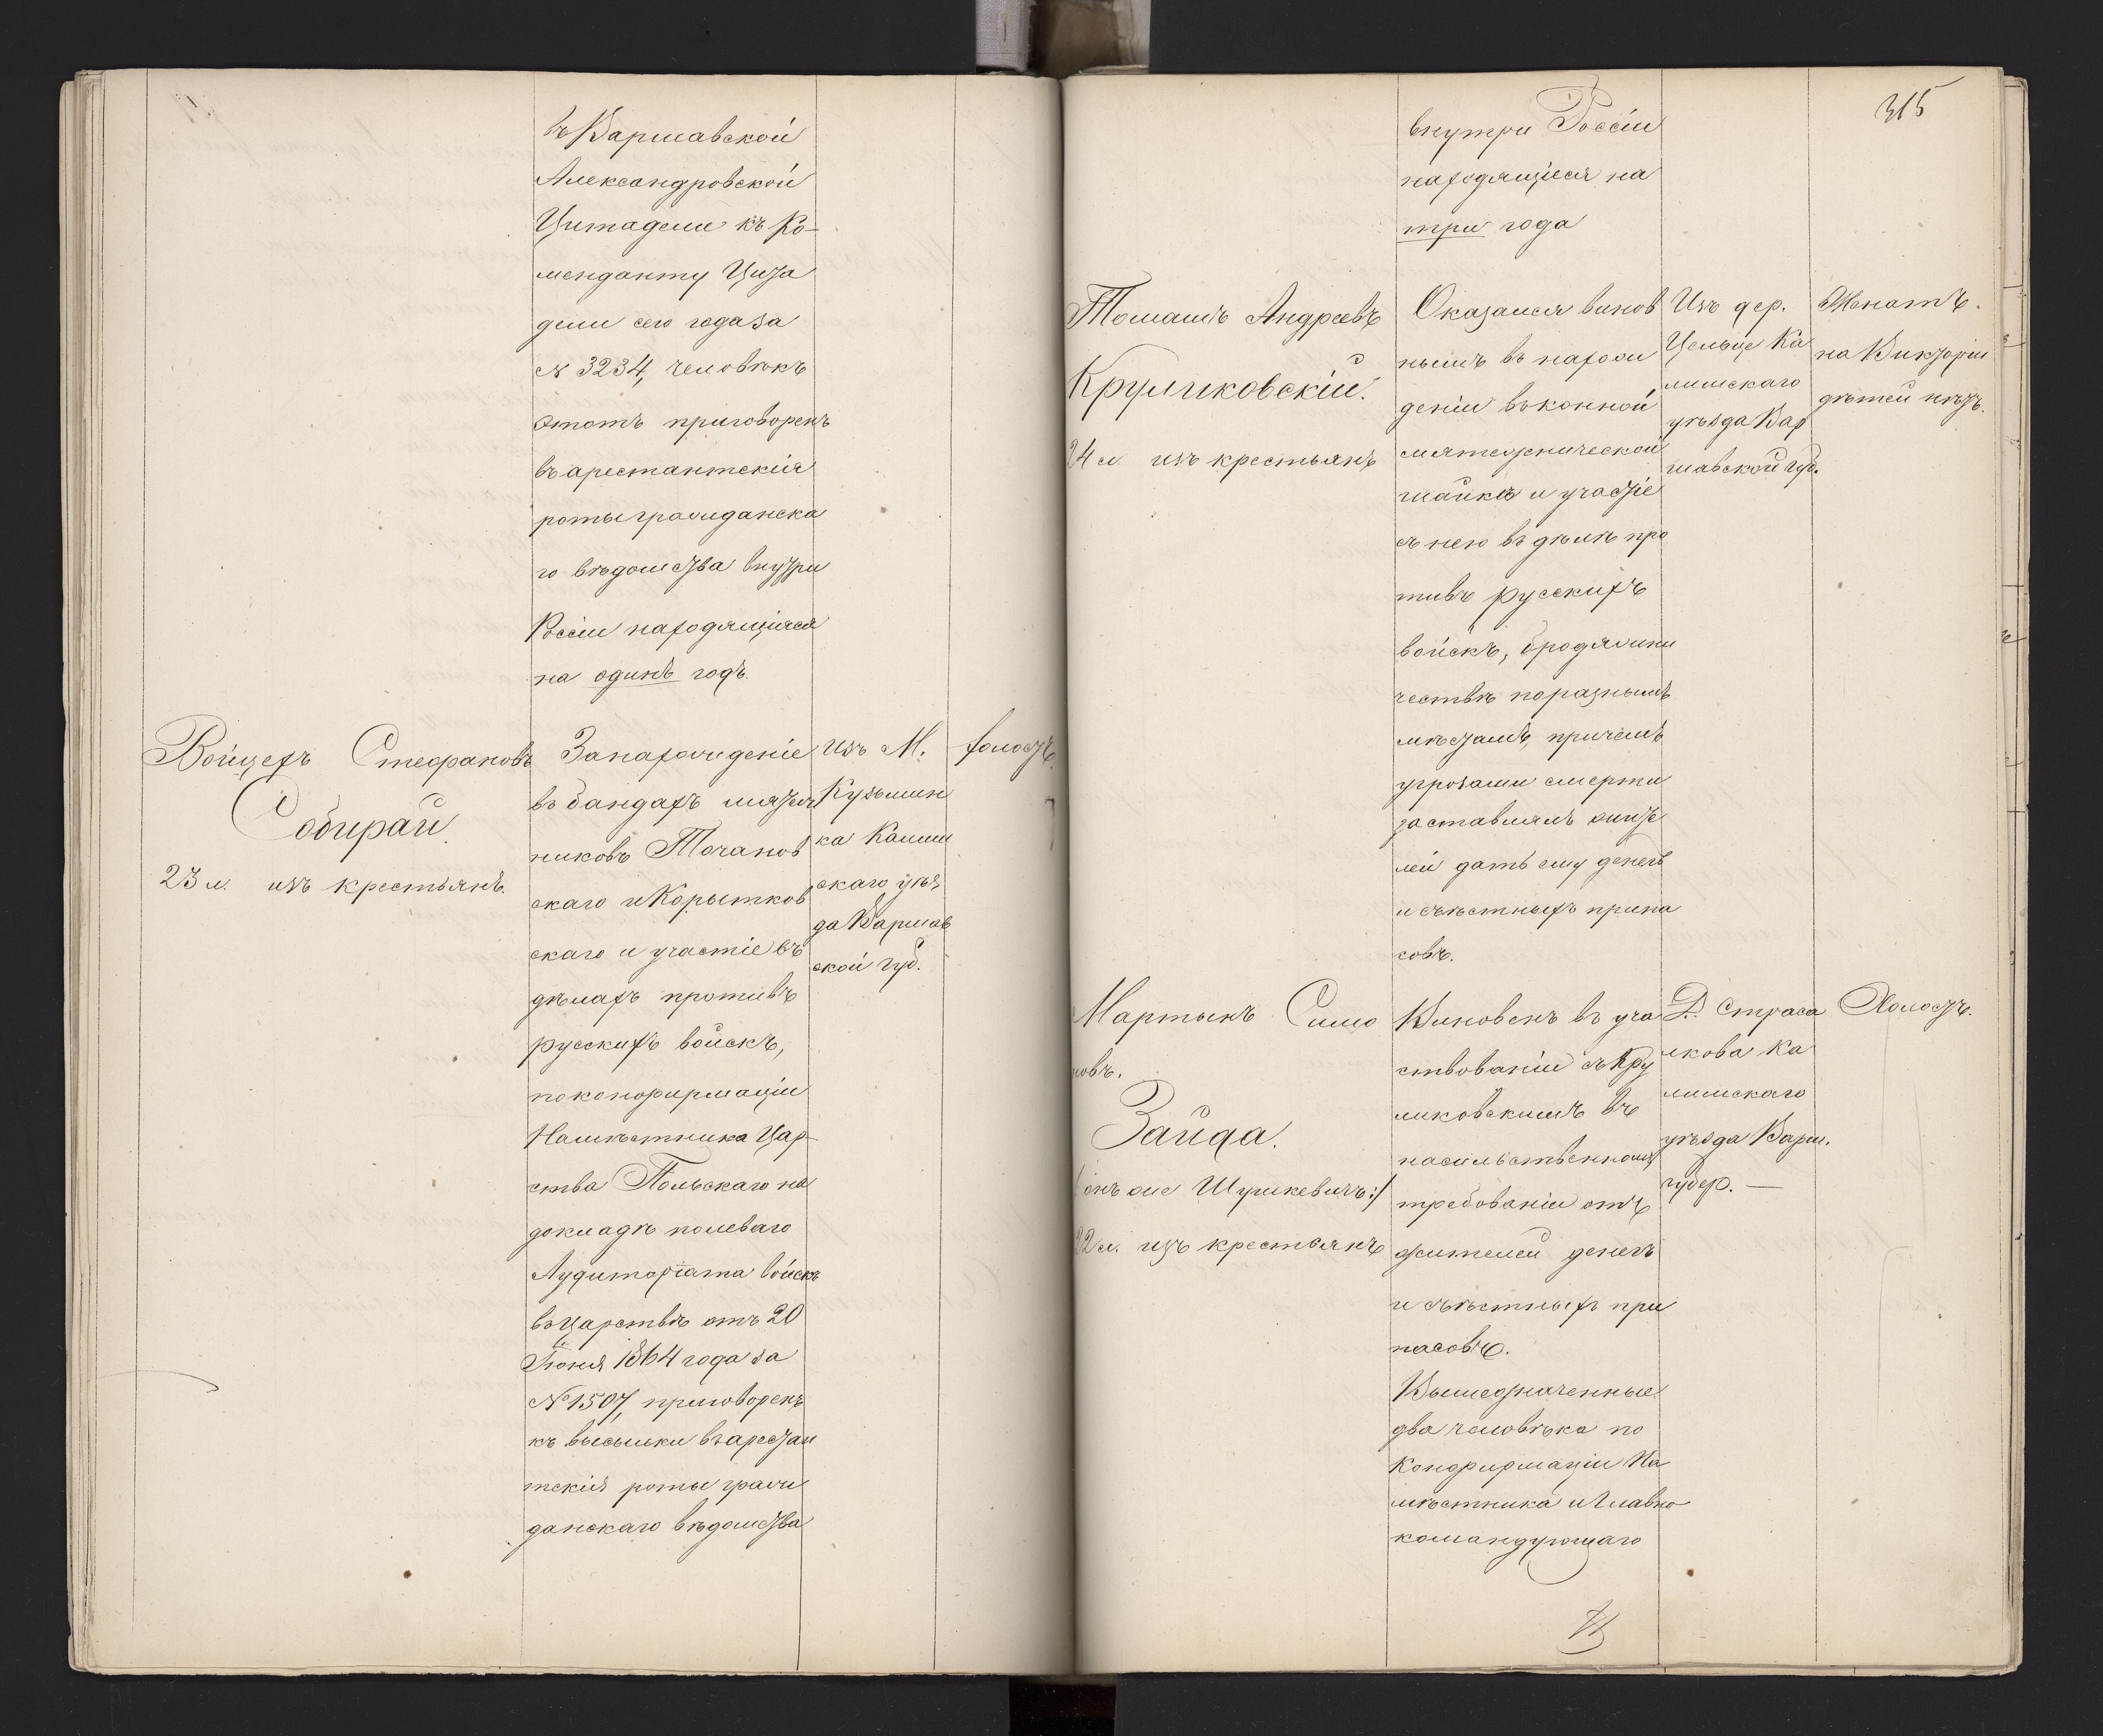 въ Варшавской
Александровской
Цитадели къ Ко-
менданту Цита
дели сего года за
№ 3234, человѣкъ
этотъ приговоренъ
въ арестантскія
роты гражданска
го вѣдомства внутри
Россіи находящіяся
на одинъ годъ.
Войцехъ Стефановъ
Собирай.
23 л. изъ крестьянъ.
За нахожденіе
въ бандахъ мятеж
никовъ Тачанов
скаго и Корытков
скаго и участіе въ
дѣлахъ противъ
русскихъ войскъ,
по конфирмаціи
Намѣстника Цар-
ства Польскаго на
докладѣ полеваго
Аудиторіата войскъ
въ царствѣ отъ 20
Іюня 1864 года за
№ 1507, приговоренъ
къ высылки въ арестан
тскія роты граж
данскаго вѣдомства
изъ М.
Кузьмин
ка Калиш
скаго уѣз
да Варшав
ской губ.
холостъ.
315
внутри Россіи
находящіеся на
три года
Томашъ Андреевъ
Круликовскій.
24 л. изъ крестьянъ
Оказался винов
нымъ въ нахож
деніи въ конной
мятежнической
шайкѣ и участіе
съ нею въ дѣлѣ про
тивъ русскихъ
войскъ, бродяжни
чествѣ по разнымъ
мѣстамъ, причемъ
угрозами смерти
заставлялъ жите
лей дать ему денегъ
и съѣстныхъ припа
совъ.
Изъ дер.
Цельце Ка
лишскаго
уѣзда Вар
шавской губ.
Женатъ.
на Викторіи
дѣтей нѣтъ.
Мартынъ Симо
новъ.
Зайда.
онъ же Шушкевичъ:/
22 л. изъ крестьянъ
Виновенъ въ уча
ствованіи съ Кру
ликовскимъ въ
насильственномъ
требованіи отъ
жителей денегъ
и съѣстныхъ при
пасовъ.
Вышеозначенные
два человѣка по
Конфирмаціи На
мѣстника и Главно
командующаго
Д. Страса
лкова Ка
лишскаго
уѣзда Варш.
губер. —
Холостъ.